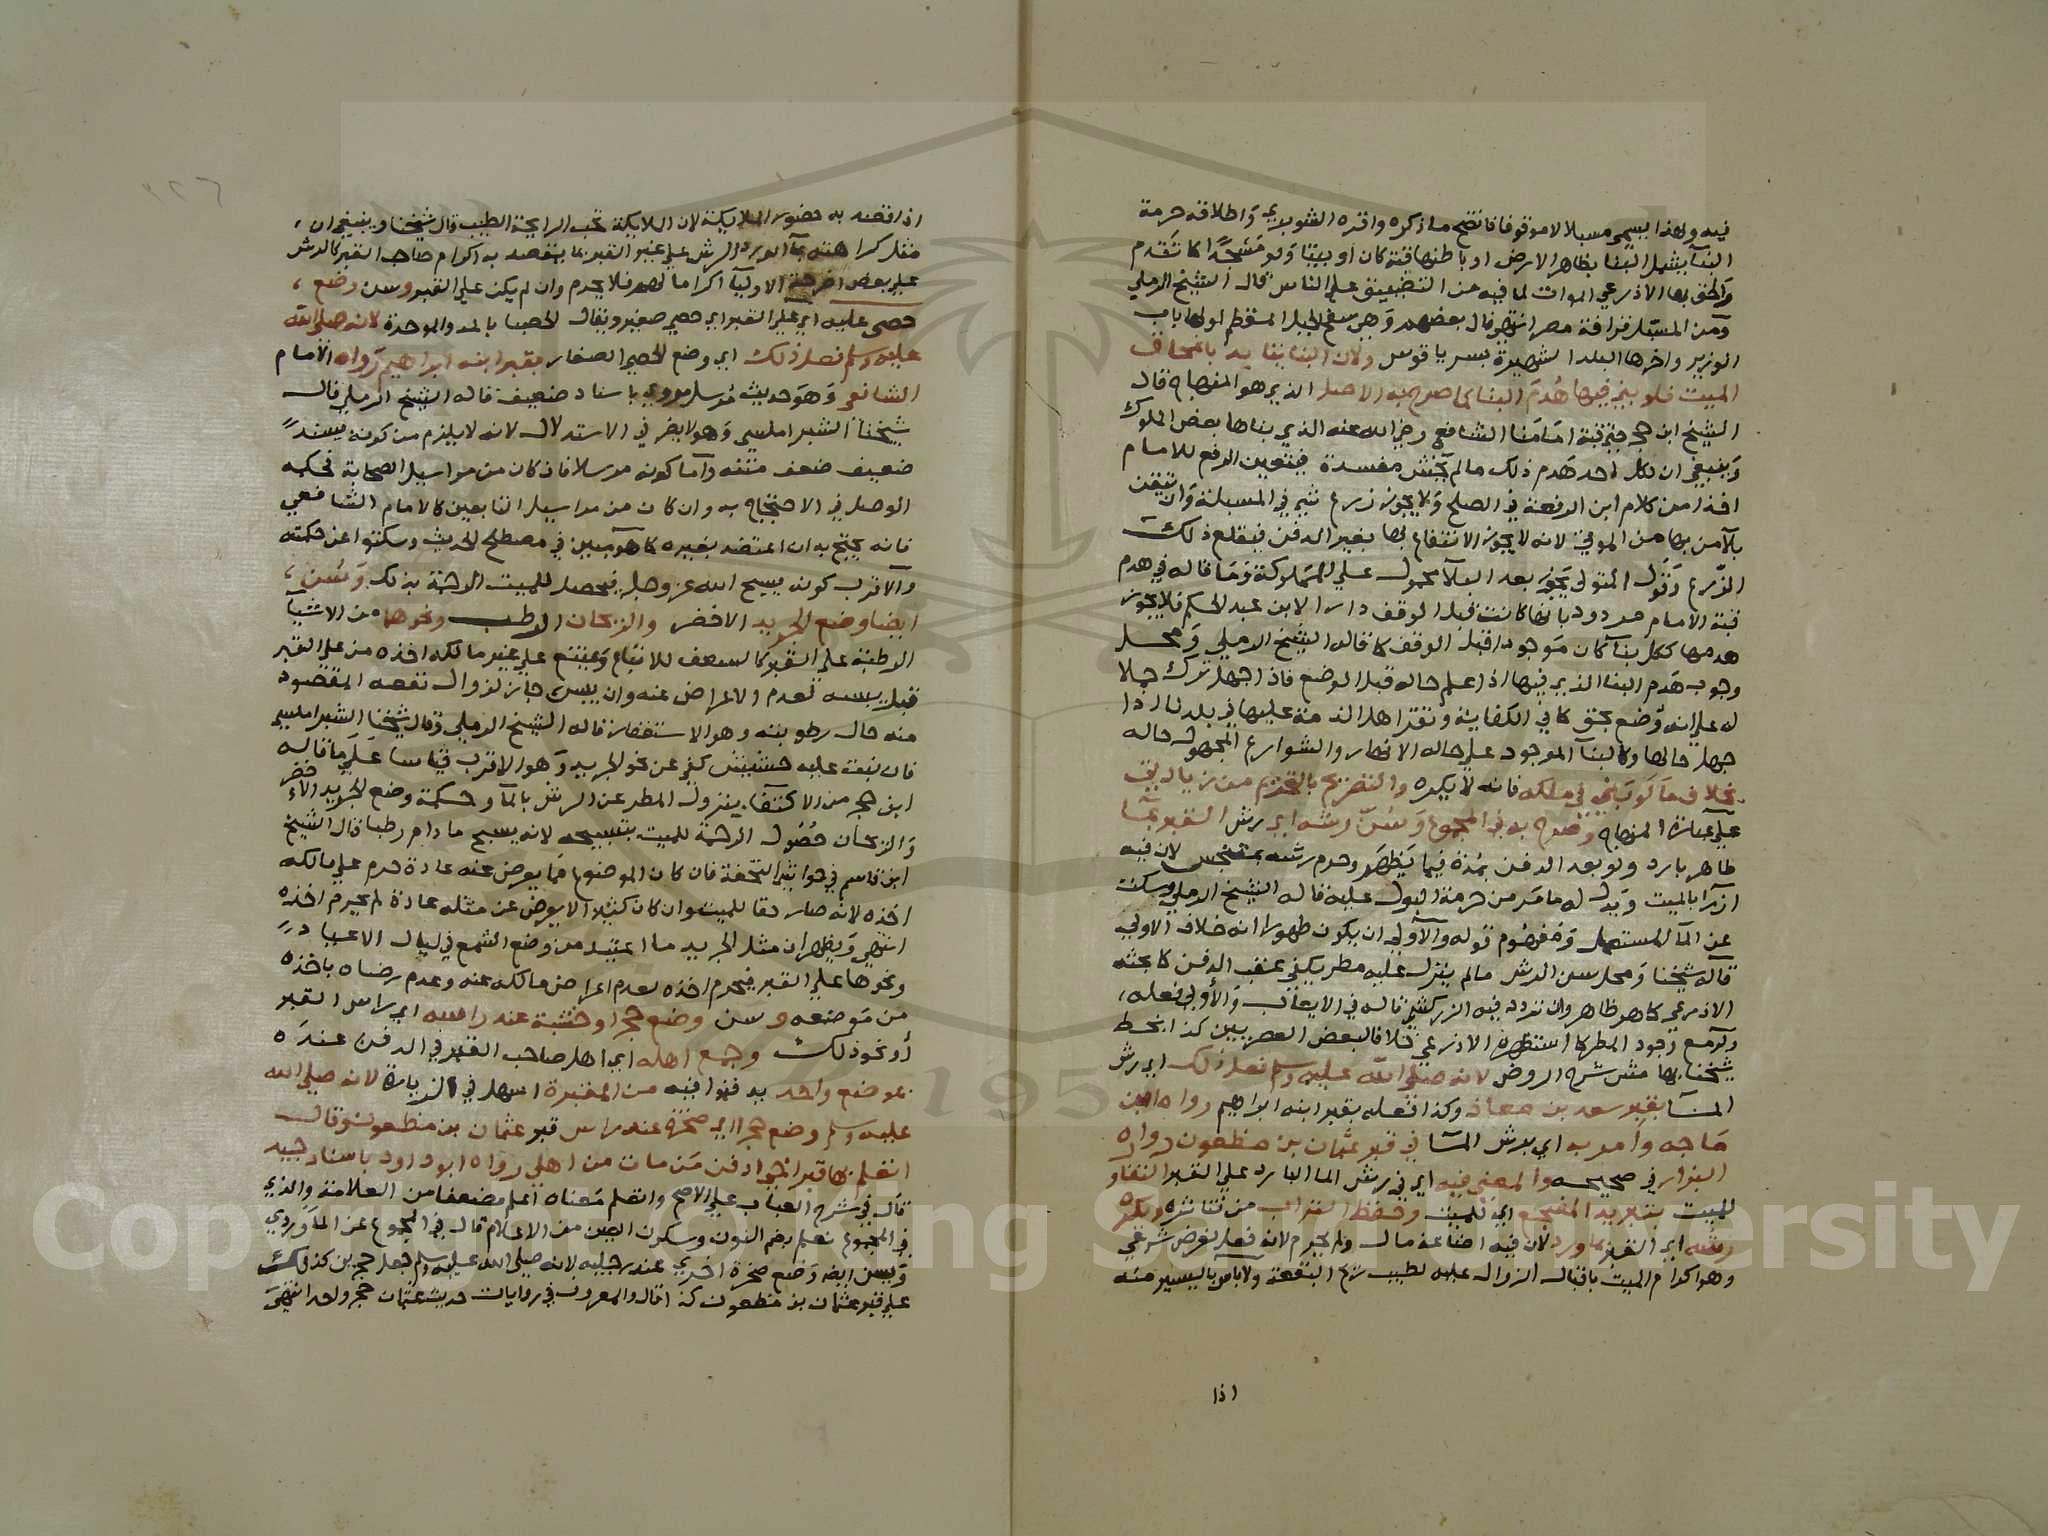 فيه ولهذا يسمى مسبلا لا موقوفا فاتضح ما ذكره واقره الشوبري واطلاقه حرمة
البنآ يشمل البنا بظاهر الارض او باطنها قبة كان او بيتا ولو مسجدا كما تقدم
والحق بها الاذرعي الموات لما فيه من التضييق على الناس قال الشيخ الرملي
ومن المسبل قرافة مصر انتهى قال بعضهم وهي سفح الجبل المقطم اولها باب
الوزير واخرها البلد الشهيرة بسرياقوس ولان البنا يتابد بانمحاق
الميت فلو بني فيها هدم البنا كما صرح به الاصل الذي هو المنهاج قال
الشيخ ابن حجر حتى قبة امامنا الشافعي رضي الله عنه الذي بناها بعض الملوك
وينبغي ان لكل احد هدم ذلك ما لم يخش مفسدة فيتعين الرفع للامام
اخذا من كلام ابن الرفعة في الصلح ولا يجوز زرع شي في المسبلة وان تيقن
بلآ من بها من الموتى لانه لا يجوز الانتفاع بها بغير الدفن فيقلع ذلك
الزرع وقول المتولي يجوز بعد البلآ محمول على المملوكة وما قاله في هدم
قبة الامام مردود بانها كانت قبل الوقف دارا لابن عبد الحكم فلا يجوز
هدمها ككل بنآ كان موجودا قبل الوقف كما قاله الشيخ الرملي ومحل
وجوب هدم البنا الذي فيها اذا علم حاله قبل الوضع فاذا جهل ترك حملا
له على انه وضع بحق كما في الكفاية ونقر اهل الذمة عليها في بلدنا اذا
جهل حالها وكالبنآ الموجود على حافة الانهار والشوارع المجهول حاله
بخلاف ما لو بني في ملكه فانه لا يكره والتصريح بالتحريم من زيادتي
على عبارة المنهاج وصرح به في المجموع وسن رشه اي رش القبر بمآ
طاهر بارد ولو بعد الدفن بمدة فيما يظهر وحرم رشه بمتنجس لان فيه
ازرآ بالميت ويدل له ما مر من حرمة البول عليه قاله الشيخ الرملي وسكت
عن المآ المستعمل ومفهوم قوله والآولى ان يكون طهورا انه خلاف الآولى
قاله شيخنا ومحل سن الرش ما لم ينزل عليه مطر يكفي عقب الدفن كما بحثه
الاذرعي كما هو ظاهر وان تردد فيه الزركشي قاله في الايعاب والأولى فعله
ولو مع وجود المطر كما استظهره الاذرعي خلافا لبعض العصريين كذا بخط
شيخنا بهامش شرح الروض لانه صلى الله عليه وسلم فعل ذلك اي رش
المآ بقبر سعد بن معاذ وكذا فعله بقبر ابنه ابراهيم رواه ابن
ماجه وامر به اي برش المآ في قبر عثمان بن مظعون رواه
البزار في صحيحه والمعنى فيه اي في رش الما البارد على القبر التفاول
للميت بتبريد المضجع اي للميت وحفظ التراب من تناثره ويكره
رشه اي القبر بما ورد لان فيه اضاعة مال ولم يحرم لانه فعل لغرض شرعي
وهو اكرام الميت باقبال الزوار عليه لطيب ريح البقعة ولا باس باليسير منه
اذا
اذا قصد به حضور الملايكة لان الملايكة تحب الرايحة الطيبة قال شيخنا وينبغي ان
مثل كراهته بمآ الورد الرش على غير القبر بما يقصد به اكرام صاحب القبر كالرش
على بعض اضرحة الاوليآ اكراما لهم فلا يحرم وان لم يكن على القبر وسن وضع
حصى عليه اي على القبر اي حصى صغير ويقال الحصبا بالمد والموحدة لانه صلى الله
عليه وسلم فعل ذلك اي وضع الحصى الصغار بقبر ابنه ابراهيم رواه الامام
الشافعي وهو حديث مرسل مروي باسناد ضعيف قاله الشيخ الرملي قال
شيخنا الشبراملسي وهو لا يضر في الاستدلال لانه لا يلزم من كونه بسند
ضعيف ضعف متنه وآما كونه مرسلا فان كان من مراسيل الصحابة فحكمه
الوصل في الاحتجاج به وان كان من مراسيل التابعين كالامام الشافعي
فانه يحتج به ان اعتضد بغيره كما هو مبين في مصطلح الحديث وسكتوا عن حكمته
والآقرب كونه يسبح الله عز وجل فيحصل للميت الرحمة بذلك وسن
ايضا وضع الجريد الاخضر والريحان الرطب ونحوهما من الاشيآ
الرطبة على القبر كالسعف للاتباع ويمتنع على غير مالكه اخذه من على القبر
قبل يبسه لعدم الاعراض عنه وان يبس جاز لزوال نفعه المقصود
منه حال رطوبته وهو الاستغفار قاله الشيخ الرملي وقال شيخنا الشبراملسي
فان نبت عليه حشيش كفى عن نحو الجريد وهو الاقرب قياسا على ما قاله
ابن حجر من الاكتفآ بنزول المطر عن الرش بالمآ وحكمة وضع الجريد الاخضر
والريحان حصول الرحمة للميت بتسبيحه لانه يسبح ما دام رطبا قال الشيخ
ابن قاسم في حواشي التحفة فان كان الموضوع مما يعرض عنه عادة حرم على مالكه
اخذه لانه صار حقا للميت وان كان كثيرا لا يعرض عن مثله عادة لم يحرم اخذه
انتهى ويظهر ان مثل الجريد ما اعتيد من وضع الشمع في ليال الاعياد
ونحوها على القبر فيحرم اخذه لعدم اعراض مالكه عنه وعدم رضاه باخذه
من موضعه وسن وضع حجر او خشبة عند راسه اي راس القبر
أو نحو ذلك وجمع اهله اي اهل صاحب القبر في الدفن عنده
بموضع واحد يدفنوا فيه من المقبرة اسهل في الزيارة لانه صلى الله
عليه وسلم وضع حجرا اي صخرة عند راس قبر عثمان بن مظعون وقال
اتعلم بها قبر اخي وادفن من مات من اهلي رواه ابو داود باسناد جيد
قال في شرح العباب على الاصح واتعلم معناه أعلم مضعفا من العلامة والذي
في المجموع نعلم بضم النون وسكون العين من الاعلام قال في المجموع عن المآوردي
ويسن ايضا وضع صخرة اخرى عند رجليه لانه صلى الله عليه وسلم جعل حجرين كذلك
على قبر عثمان بن مظعون كذا قال والمعروف في روايات حديث عثمان حجر واحد انتهى